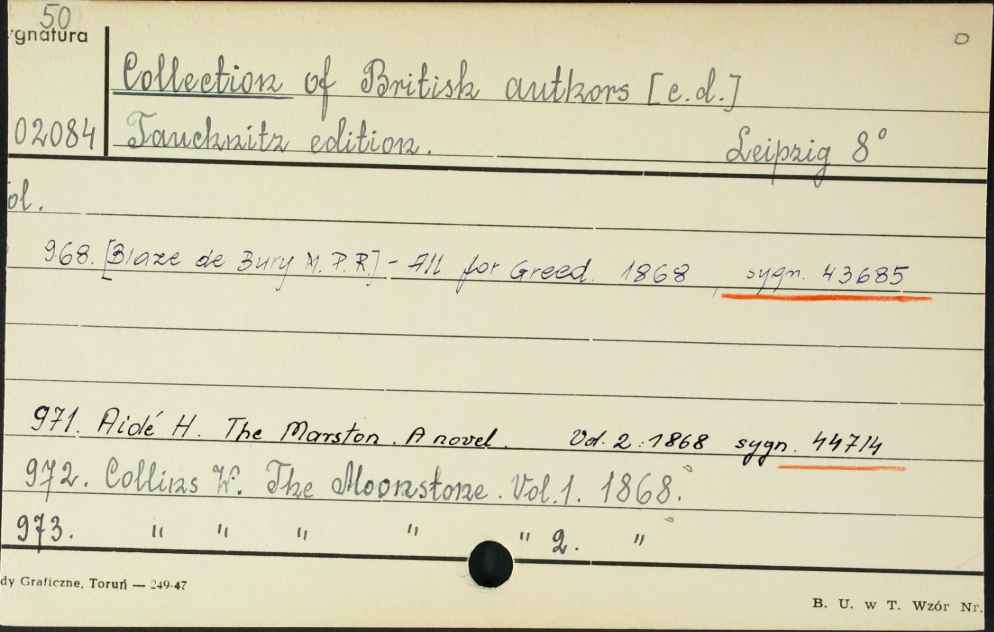 50
ygnatura
Collection of British authors [e.d.]
02084 Tauchnitz edition. Leipzig 8°
ol.
968. [Blaze de Bury M. P. R.] - All for Greed. 1868, sygn. 43685
971. Aidé H. The Marston. A novel. Vol. 2. 1868 sygn. 44714
972. Collins W. The Moonstone. Vol. 1. 1868.
973. " " " " " 2. "
dy Graficzne, Toruń — 249-47
B. U. w T. Wzór Nr.